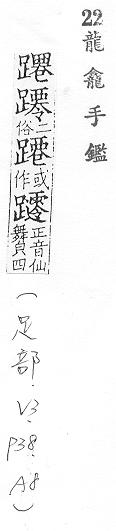 22 龍龕手鑑
二俗 或作 正音仙舞皃四
(足部.V3.P38.A8)